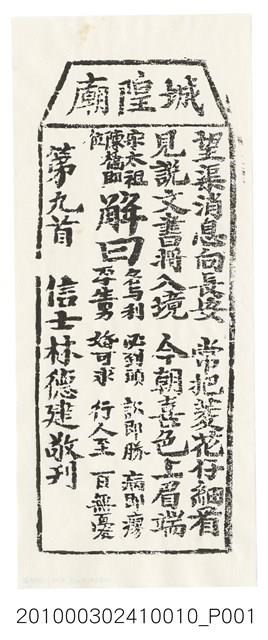 城隍廟
望渠消息向長安 常把菱花仔細看
見說文書將入境 今朝喜色上眉瑞
宋太祖
陳橋即
位
解曰
名与利 必到頭 訟即勝 病即瘳
孕生男 婚可求 行人至 百無憂
第九首 信士林德建敬刊
201000302410010_P001